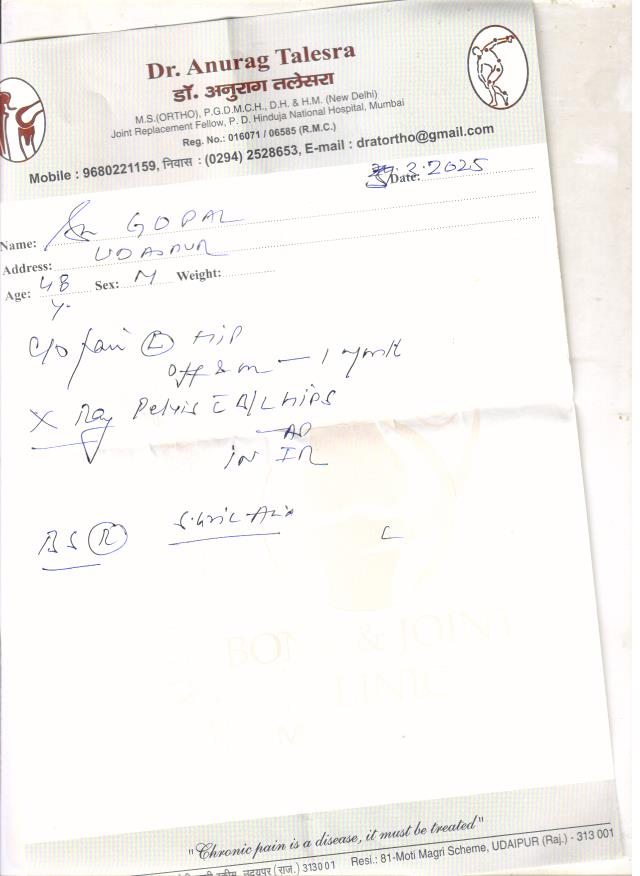 Dr. Anurag Talesra
डॉ. अनुराग तलेसरा
M.S.(ORTHO), P.G.D.M.C.H., D.H. & H.M. (New Delhi)
Joint Replacement Fellow, P. D. Hinduja National Hospital, Mumbai
Reg. No.: 016071 / 06585 (R.M.C.)
Mobile : 9680221159, निवास : (0294) 2528653, E-mail : dratortho@gmail.com
Date: 3.2025
Name: GOPAL
Address: UDAIPUR
Age: 48 y. Sex: M Weight:
C/O Pain (L) HIP
Off & on — 1
X Ray Pelvis C B/L HIPS
AP
IN IR
BS (R) S. Uric Acid
BON & JOINT
LINIC
"Chronic pain is a disease, it must be treated"
उदयपुर (राज.) 313001 Resi.: 81-Moti Magri Scheme, UDAIPUR (Raj.) - 313 001